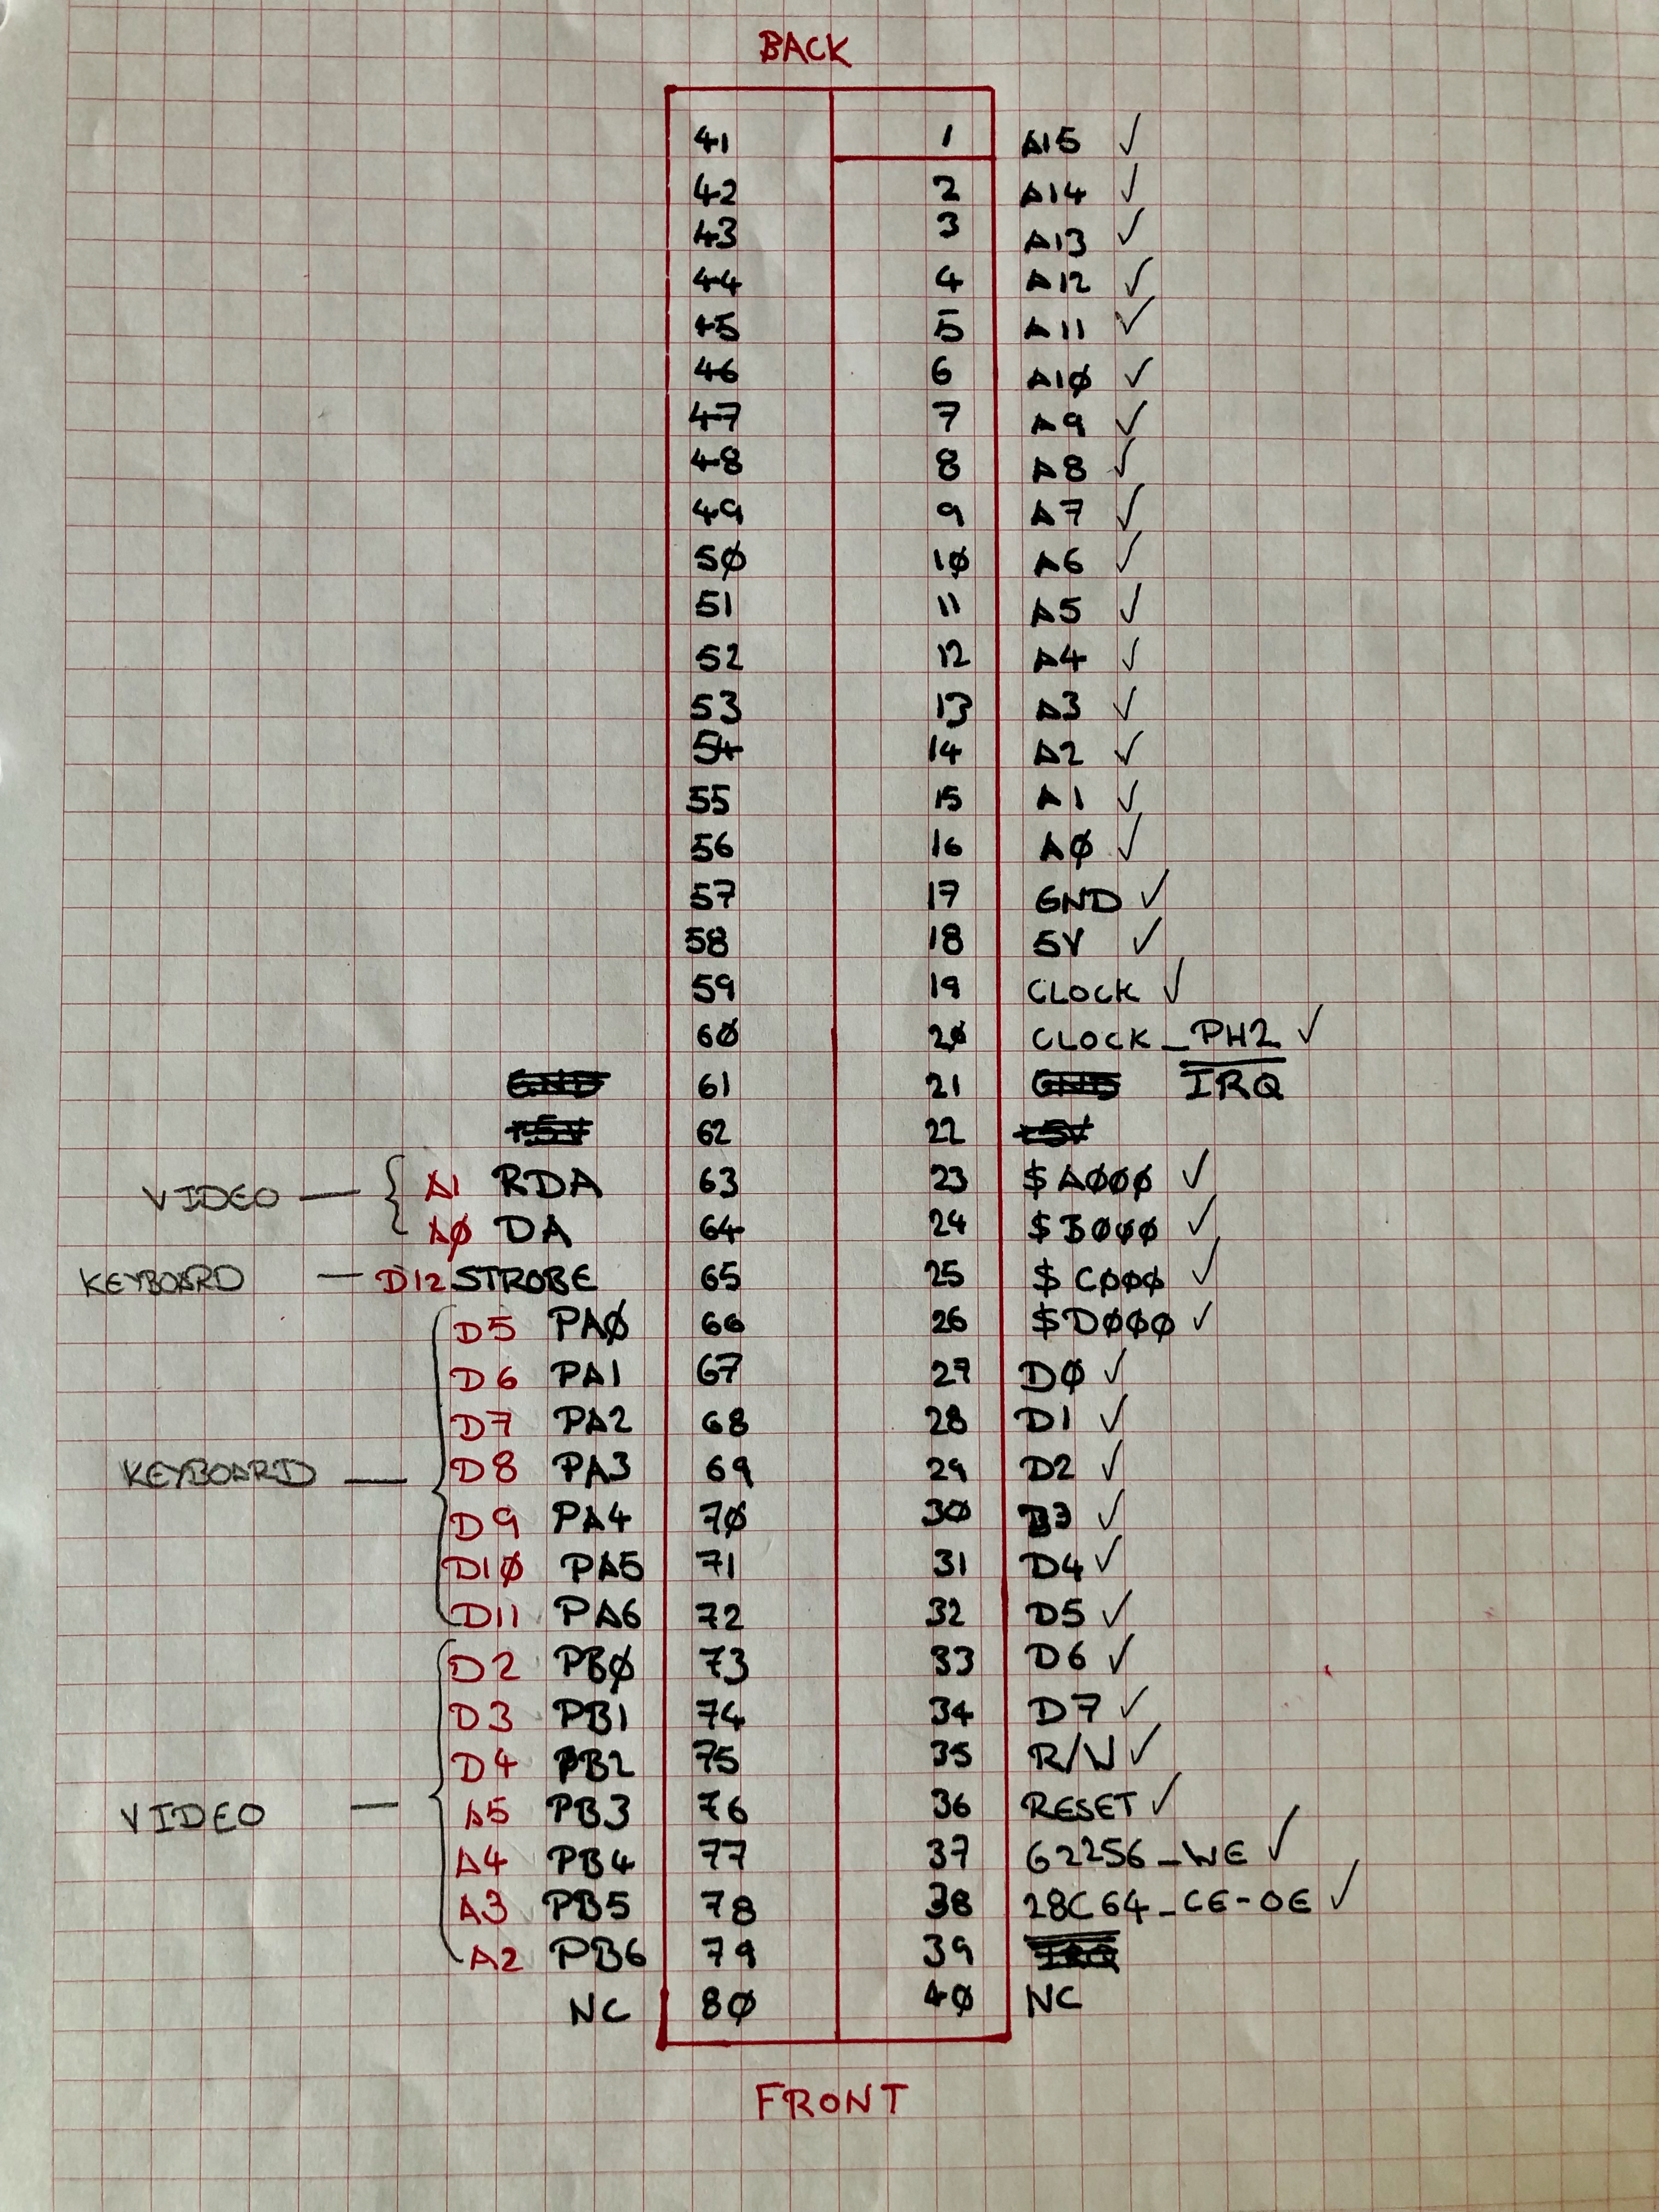 BACK
41 1 A15 ✓
42 2 A14 ✓
43 3 A13 ✓
44 4 A12 ✓
45 5 A11 ✓
46 6 A1Ø ✓
47 7 A9 ✓
48 8 A8 ✓
49 9 A7 ✓
5Ø 1Ø A6 ✓
51 11 A5 ✓
52 12 A4 ✓
53 13 A3 ✓
54 14 A2 ✓
55 15 A1 ✓
56 16 AØ ✓
57 17 GND ✓
58 18 5V ✓
59 19 CLOCK ✓
6Ø 2Ø CLOCK_PH2 ✓
GND 61 21 GND IRQ
+5V 62 22 +5V
VIDEO — { A1 RDA 63 23 $AØØØ ✓
AØ DA 64 24 $BØØØ ✓
KEYBOARD — D12 STROBE 65 25 $CØØØ ✓
D5 PAØ 66 26 $DØØØ ✓
D6 PA1 67 27 DØ ✓
D7 PA2 68 28 D1 ✓
KEYBOARD — D8 PA3 69 29 D2 ✓
D9 PA4 7Ø 3Ø D3 ✓
D1Ø PA5 71 31 D4 ✓
D11 PA6 72 32 D5 ✓
D2 PBØ 73 33 D6 ✓
D3 PB1 74 34 D7 ✓
D4 PB2 75 35 R/W ✓
VIDEO — A5 PB3 76 36 RESET ✓
A4 PB4 77 37 62256_WE ✓
A3 PB5 78 38 28C64_CE-OE ✓
A2 PB6 79 39 IRQ
NC 8Ø 4Ø NC
FRONT